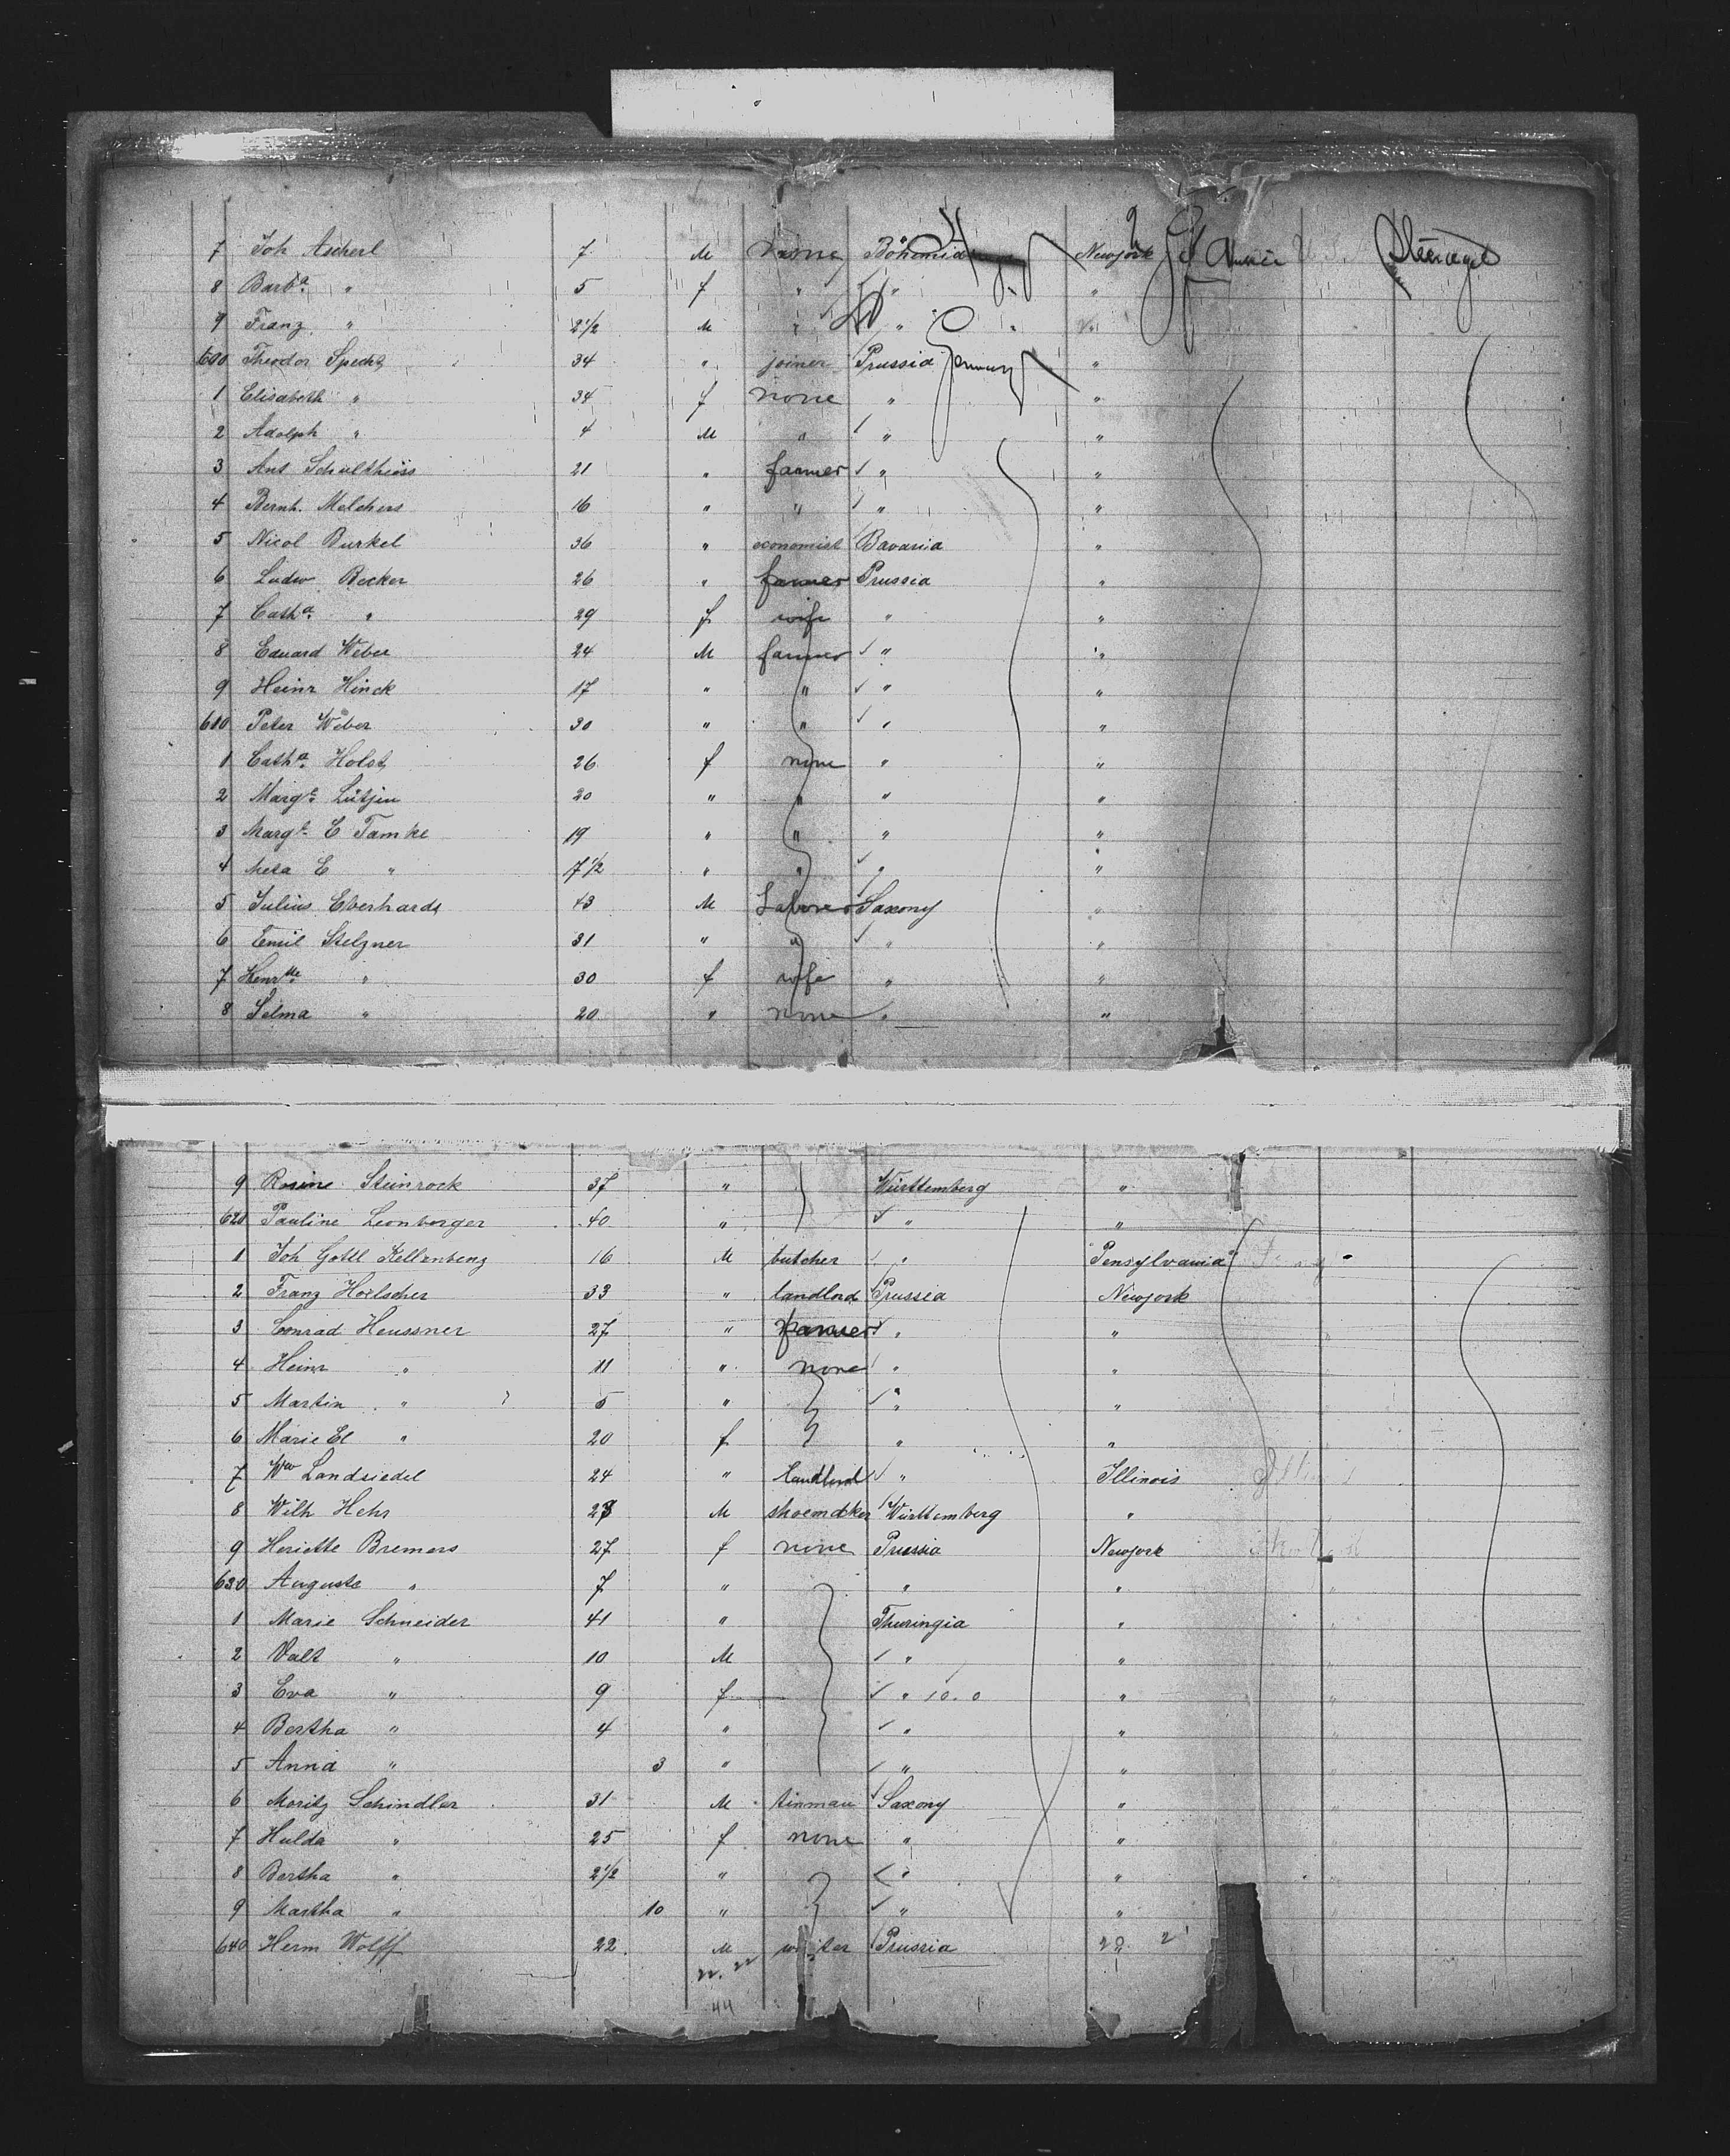 7 Joh Ascherl 7 M none Bohemia Newjork Steerage
8 Barba. " 5 f " " "
9 Franz " 2 1/2 M " " "
600 Theodor Specht 34 " joiner Prussia Germany "
1 Elisabeth " 34 f none " "
2 Adolph " 4 M " " "
3 Ant Schultheiss 21 " farmer " "
4 Bernh. Melchers 16 " " " "
5 Nicol Burkel 36 " economist Bavaria "
6 Ludw Becker 26 " farmer Prussia "
7 Catha. " 29 f wife " "
8 Eduard Weber 24 M farmer " "
9 Heinr Hinck 17 " " " "
610 Peter Weber 30 " " " "
1 Catha. Holst 26 f none " "
2 Margt. Lütjen 20 " " " "
3 Margt. C Tamke 19 " " " "
4 Meta C " 7 1/2 " " " "
5 Julius Eberhardt 43 M Laborer Saxony "
6 Emil Stelzner 31 " " " "
7 Henrtte. " 30 f wife " "
8 Selma " 20 " none " "
9 Rosine Steinrock 37 " Württemberg "
620 Pauline Leonberger 40 " " "
1 Joh Gottl Kellenbenz 16 M butcher " Pensylvania
2 Franz Hoelscher 33 " landlord Prussia Newjork
3 Conrad Heussner 27 " farmer " "
4 Heinr " 11 " none " "
5 Martin " 5 " " "
6 Marie El " 20 f " "
7 Ww Landsiedel 24 " landlord " Illinois
8 Wilh Hehr 28 M shoemaker Württemberg "
9 Heriette Bremers 27 f none Prussia Newjork
630 Auguste " 7 " " "
1 Marie Schneider 41 " Thuringia "
2 Valt " 10 M " "
3 Eva " 9 f " 10.0 "
4 Bertha " 4 " " "
5 Anna " 3 " " "
6 Moritz Schindler 31 M tinman Saxony "
7 Hulda " 25 f none " "
8 Bertha " 2 1/2 " " "
9 Martha " 10 " " "
640 Herm Wolff 22 M Prussia
44